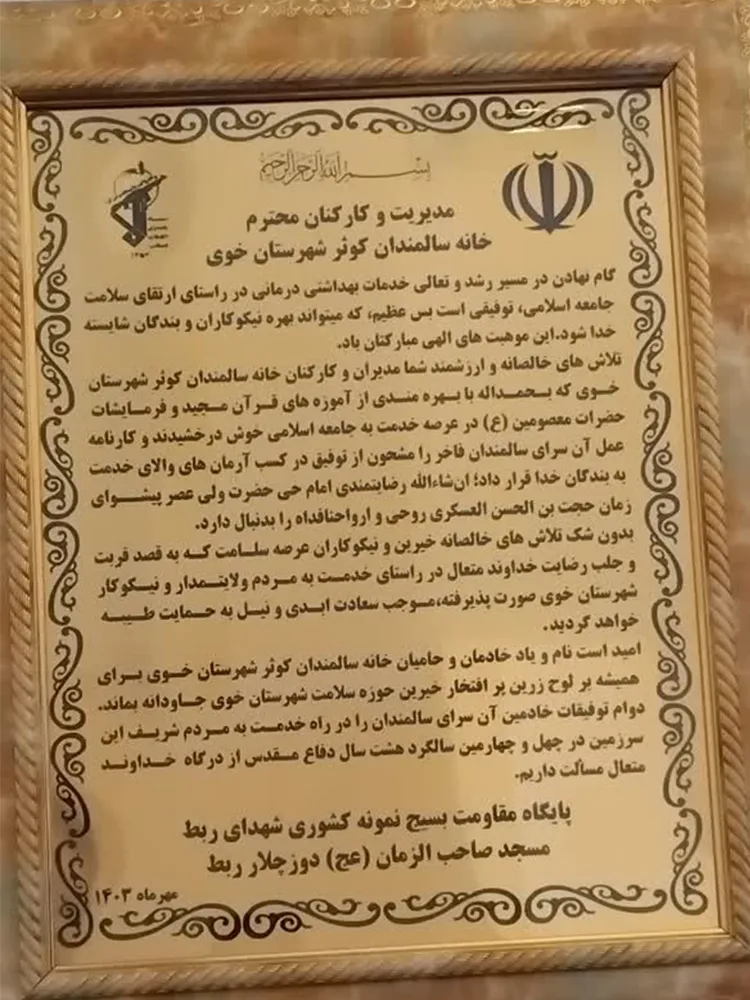 بسم الله الرحمن الرحیم
مدیریت و کارکنان محترم
خانه سالمندان کوثر شهرستان خوی
گام نهادن در مسیر رشد و تعالی خدمات بهداشتی درمانی در راستای ارتقای سلامت
جامعه اسلامی، توفیقی است بس عظیم، که میتواند بهره نیکوکاران و بندگان شایسته
خدا شود.این موهبت های الهی مبارکتان باد.
تلاش های خالصانه و ارزشمند شما مدیران و کارکنان خانه سالمندان کوثر شهرستان
خوی که بحمداله با بهره مندی از آموزه های قرآن مجید و فرمایشات
حضرات معصومین (ع) در عرصه خدمت به جامعه اسلامی خوش درخشیدند و کارنامه
عمل آن سرای سالمندان فاخر را مشحون از توفیق در کسب آرمان های والای خدمت
به بندگان خدا قرار داد؛ ان‌شاءالله رضایتمندی امام حی حضرت ولی عصر پیشوای
زمان حجت بن الحسن العسکری روحی و ارواحنافداه را بدنبال دارد.
بدون شک تلاش های خالصانه خیرین و نیکوکاران عرصه سلامت که به قصد قربت
و جلب رضایت خداوند متعال در راستای خدمت به مردم ولایتمدار و نیکوکار
شهرستان خوی صورت پذیرفته،موجب سعادت ابدی و نیل به حمایت طیبه
خواهد گردید.
امید است نام و یاد خادمان و حامیان خانه سالمندان کوثر شهرستان خوی برای
همیشه بر لوح زرین پر افتخار خیرین حوزه سلامت شهرستان خوی جاودانه بماند.
دوام توفیقات خادمین آن سرای سالمندان را در راه خدمت به مردم شریف این
سرزمین در چهل و چهارمین سالگرد هشت سال دفاع مقدس از درگاه خداوند
متعال مسألت داریم.
پایگاه مقاومت بسیج نمونه کشوری شهدای ربط
مسجد صاحب الزمان (عج) دوزچلار ربط
مهرماه ۱۴۰۳